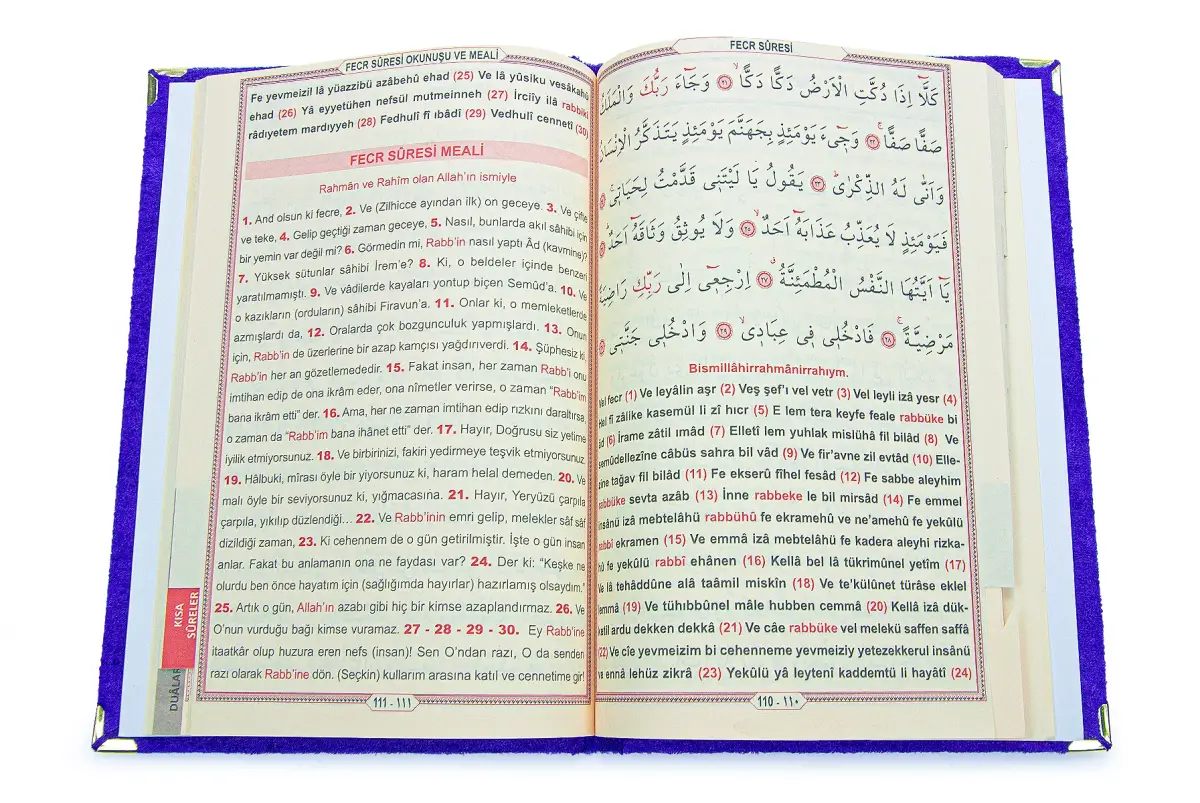 FECR SÛRESİ
كَلَّٓا اِذَا دُكَّتِ الْاَرْضُ دَكًّا دَكًّاۙ ﴿٢١﴾ وَجَٓاءَ رَبُّكَ وَالْمَلَكُ
صَفًّا صَفًّاۚ ﴿٢٢﴾ وَج۪ٓيءَ يَوْمَئِذٍ بِجَهَنَّمَ يَوْمَئِذٍ يَتَذَكَّرُ الْاِنْسَانُ
وَاَنّٰى لَهُ الذِّكْرٰىۜ ﴿٢٣﴾ يَقُولُ يَا لَيْتَن۪ي قَدَّمْتُ لِحَيَات۪يۚ
فَيَوْمَئِذٍ لَا يُعَذِّبُ عَذَابَهُٓ اَحَدٌۙ ﴿٢٥﴾ وَلَا يُوثِقُ وَثَاقَهُٓ اَحَدٌۜ
يَٓا اَيَّتُهَا النَّفْسُ الْمُطْمَئِنَّةُۗ ﴿٢٧﴾ اِرْجِع۪ٓي اِلٰى رَبِّكِ رَاضِيَةً
مَرْضِيَّةًۚ ﴿٢٨﴾ فَادْخُل۪ي ف۪ي عِبَاد۪يۙ ﴿٢٩﴾ وَادْخُل۪ي جَنَّت۪ي
Bismillâhirrahmânirrahıym.
Vel fecr (1) Ve leyâlin aşr (2) Veş şef'ı vel vetr (3) Vel leyli izâ yesr (4)
Hel fî zâlike kasemül li zî hıcr (5) E lem tera keyfe feale rabbüke bi
âd (6) İrame zâtil ımâd (7) Elletî lem yuhlak mislühâ fil bilâd (8) Ve
semûdellezîne câbüs sahra bil vâd (9) Ve fir'avne zil evtâd (10) Elle-
zîne tağav fil bilâd (11) Fe ekserû fîhel fesâd (12) Fe sabbe aleyhim
rabbüke sevta azâb (13) İnne rabbeke le bil mirsâd (14) Fe emmel
insânü izâ mebtelâhü rabbühû fe ekramehû ve ne'amehû fe yekûlü
rabbî ekramen (15) Ve emmâ izâ mebtelâhü fe kadera aleyhi rizka-
hû fe yekûlü rabbî ehânen (16) Kellâ bel lâ tükrimûnel yetîm (17)
Ve lâ tehâddûne alâ taâmil miskîn (18) Ve te'külûnet türâse eklel
lemmâ (19) Ve tühıbbûnel mâle hubben cemmâ (20) Kellâ izâ dük-
ketil ardu dekken dekkâ (21) Ve câe rabbüke vel melekü saffen saffâ
(22) Ve cîe yevmeizim bi cehenneme yevmeiziy yetezekkerul insânü
ve ennâ lehüz zikrâ (23) Yekûlü yâ leytenî kaddemtü li hayâtî (24)
110 - ١١٠
FECR SÛRESİ OKUNUŞU VE MEALİ
Fe yevmeizil lâ yüazzibü azâbehû ehad (25) Ve lâ yûsiku vesâkahû
ehad (26) Yâ eyyetühen nefsül mutmeinneh (27) İrciîy ilâ rabbiki
râdıyetem mardıyyeh (28) Fedhulî fî ıbâdî (29) Vedhulî cennetî (30)
FECR SÛRESİ MEALİ
Rahmân ve Rahîm olan Allah'ın ismiyle
1. And olsun ki fecre, 2. Ve (Zilhicce ayından ilk) on geceye. 3. Ve çifte
ve teke, 4. Gelip geçtiği zaman geceye, 5. Nasıl, bunlarda akıl sâhibi için
bir yemin var değil mi? 6. Görmedin mi, Rabb'in nasıl yaptı Âd (kavmine)?
7. Yüksek sütunlar sâhibi İrem'e? 8. Ki, o beldeler içinde benzeri
yaratılmamıştı. 9. Ve vâdilerde kayaları yontup biçen Semûd'a. 10. Ve
o kazıkların (orduların) sâhibi Firavun'a. 11. Onlar ki, o memleketlerde
azmışlardı da, 12. Oralarda çok bozgunculuk yapmışlardı. 13. Onun
için, Rabb'in de üzerlerine bir azap kamçısı yağdırıverdi. 14. Şüphesiz ki,
Rabb'in her an gözetlemededir. 15. Fakat insan, her zaman Rabb'i onu
imtihan edip de ona ikrâm eder, ona nîmetler verirse, o zaman “Rabb'im
bana ikrâm etti” der. 16. Ama, her ne zaman imtihan edip rızkını daraltırsa,
o zaman da “Rabb'im bana ihânet etti” der. 17. Hayır, Doğrusu siz yetime
iyilik etmiyorsunuz. 18. Ve birbirinizi, fakiri yedirmeye teşvik etmiyorsunuz.
19. Hâlbuki, mîrası öyle bir yiyorsunuz ki, haram helal demeden. 20. Ve
malı öyle bir seviyorsunuz ki, yığmacasına. 21. Hayır, Yeryüzü çarpıla
çarpıla, yıkılıp düzlendiği... 22. Ve Rabb'inin emri gelip, melekler sâf sâf
dizildiği zaman, 23. Ki cehennem de o gün getirilmiştir. İşte o gün insan
anlar. Fakat bu anlamanın ona ne faydası var? 24. Der ki: “Keşke ne
olurdu ben önce hayatım için (sağlığımda hayırlar) hazırlamış olsaydım.”
25. Artık o gün, Allah'ın azabı gibi hiç bir kimse azaplandırmaz. 26. Ve
O'nun vurduğu bağı kimse vuramaz. 27 - 28 - 29 - 30. Ey Rabb'ine
itaatkâr olup huzura eren nefs (insan)! Sen O'ndan razı, O da senden
razı olarak Rabb'ine dön. (Seçkin) kullarım arasına katıl ve cennetime gir!
111 - ١١١
KISA
SÛRELER
DUÂLAR